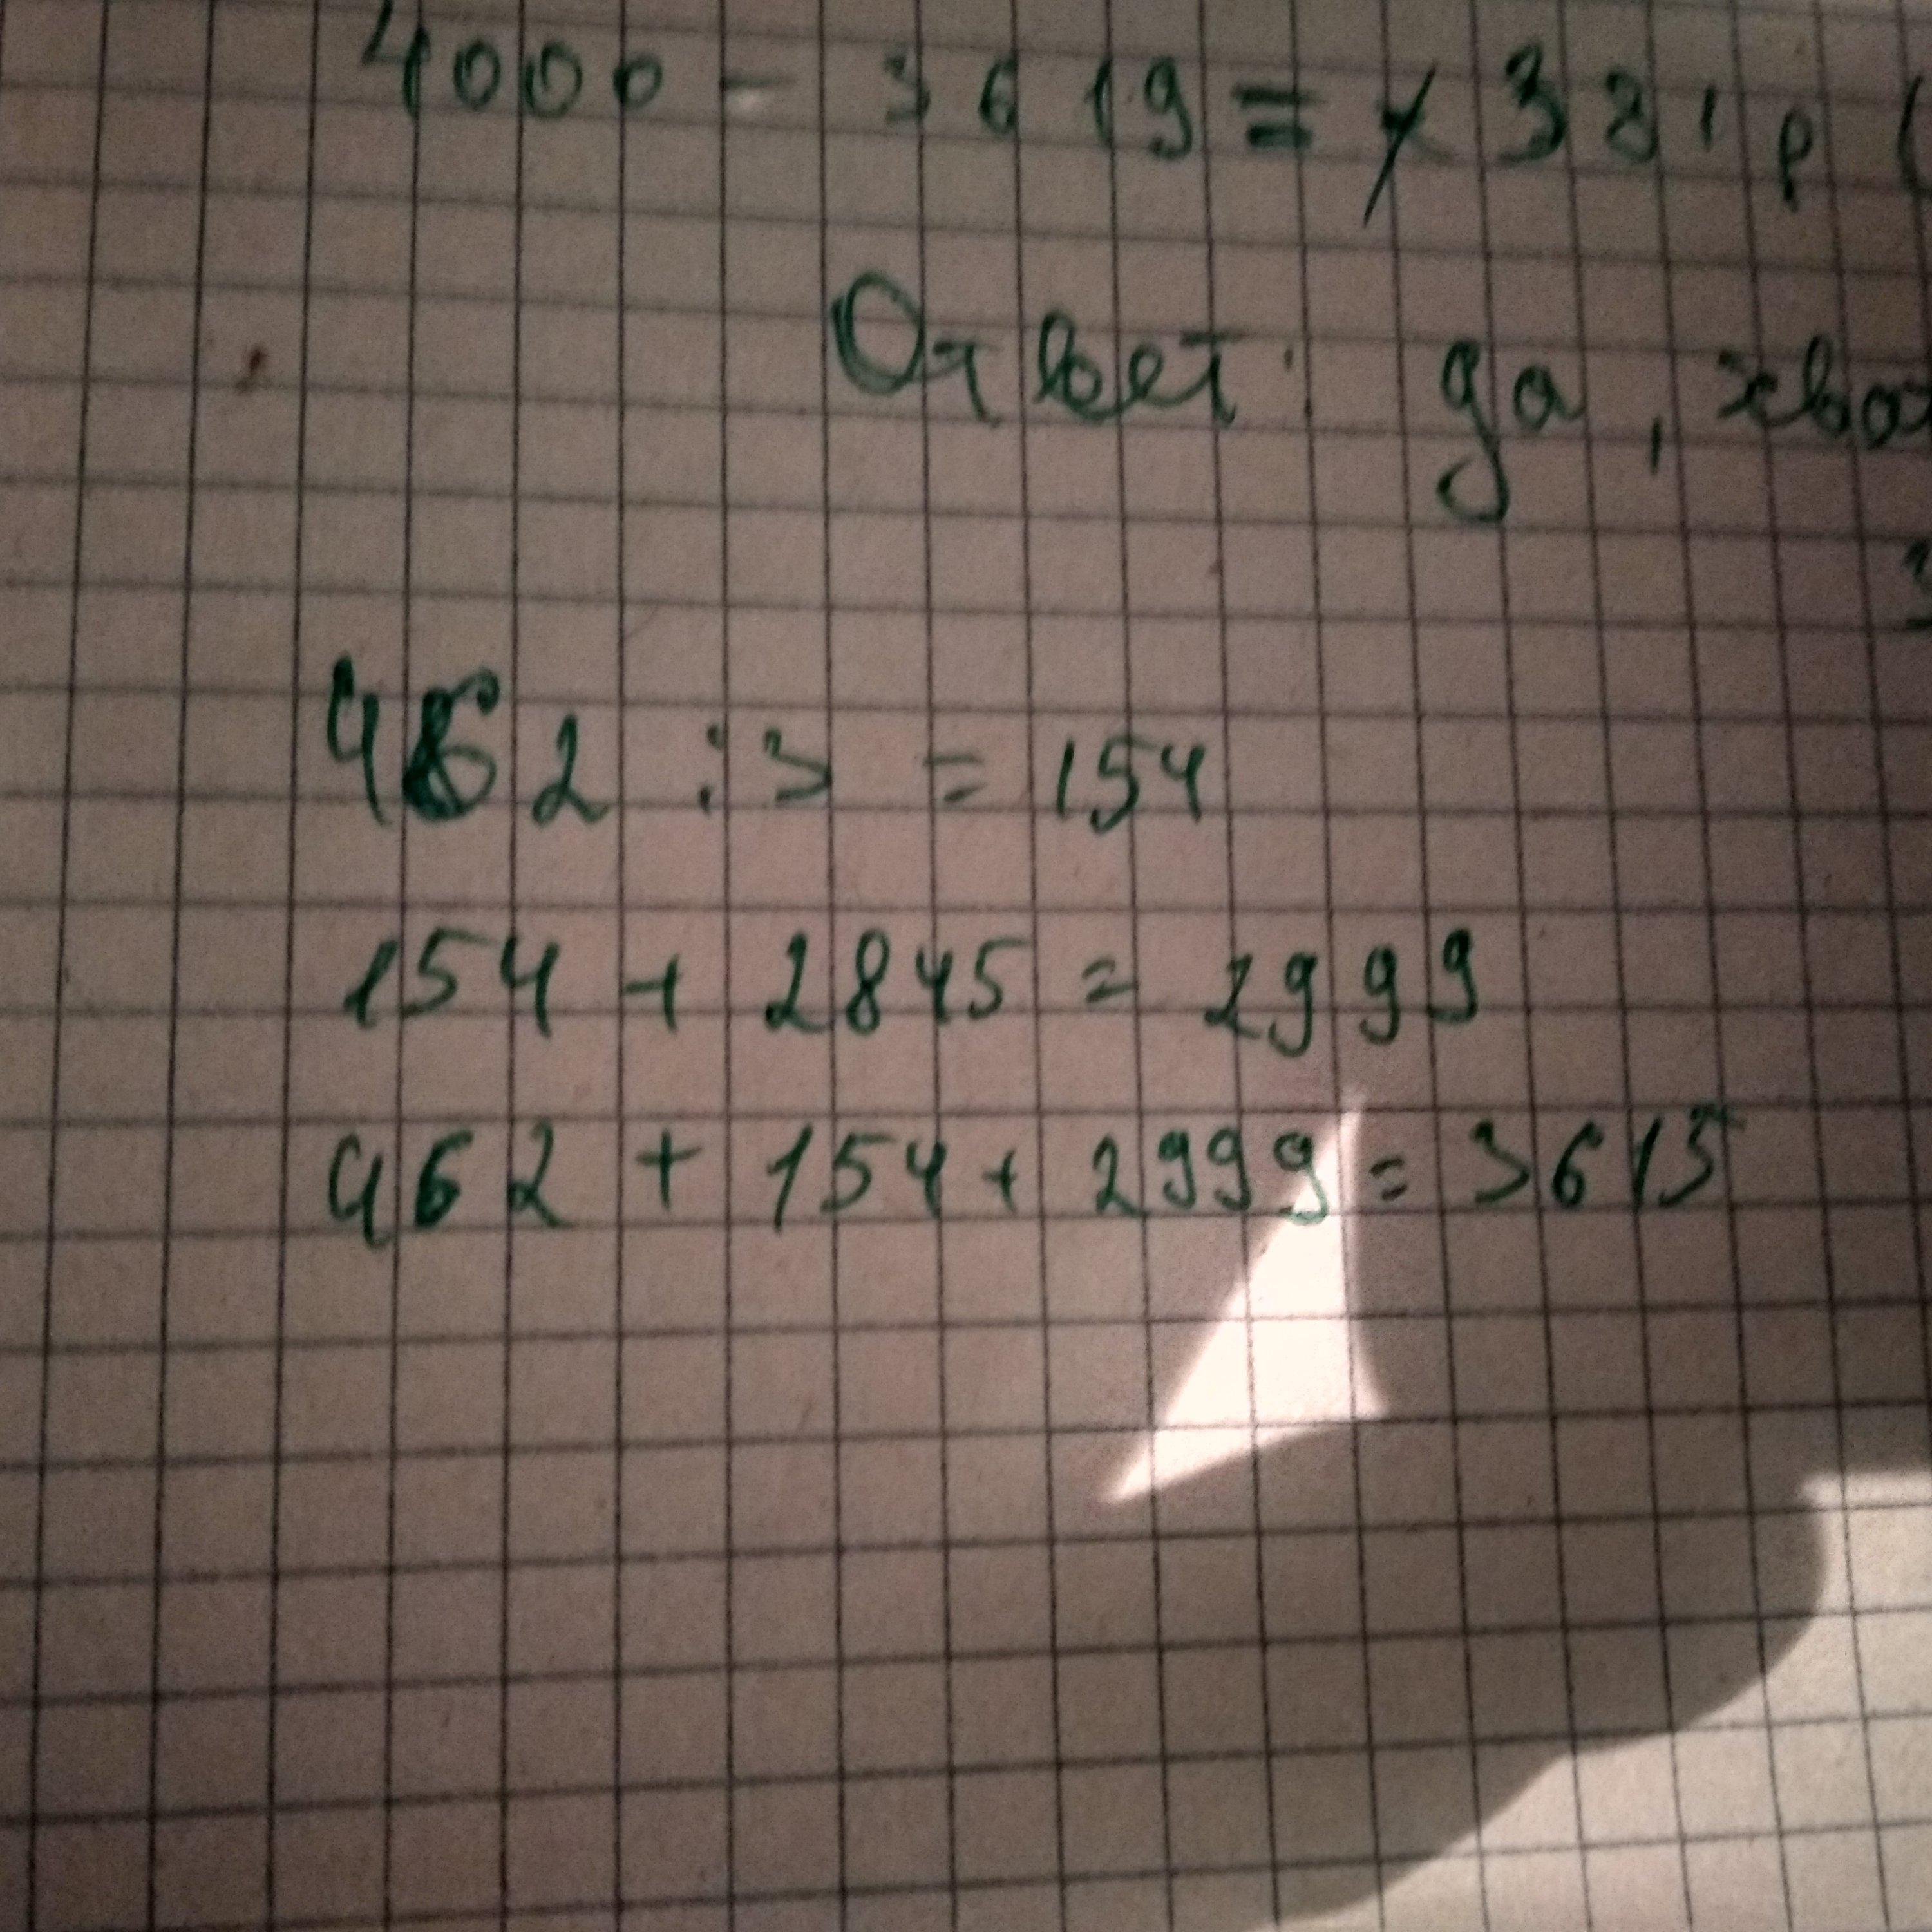 4000 - 3619 = 381 р (
Ответ: да,
462 : 3 = 154
154 + 2845 = 2999
462 + 154 + 2999 = 3615